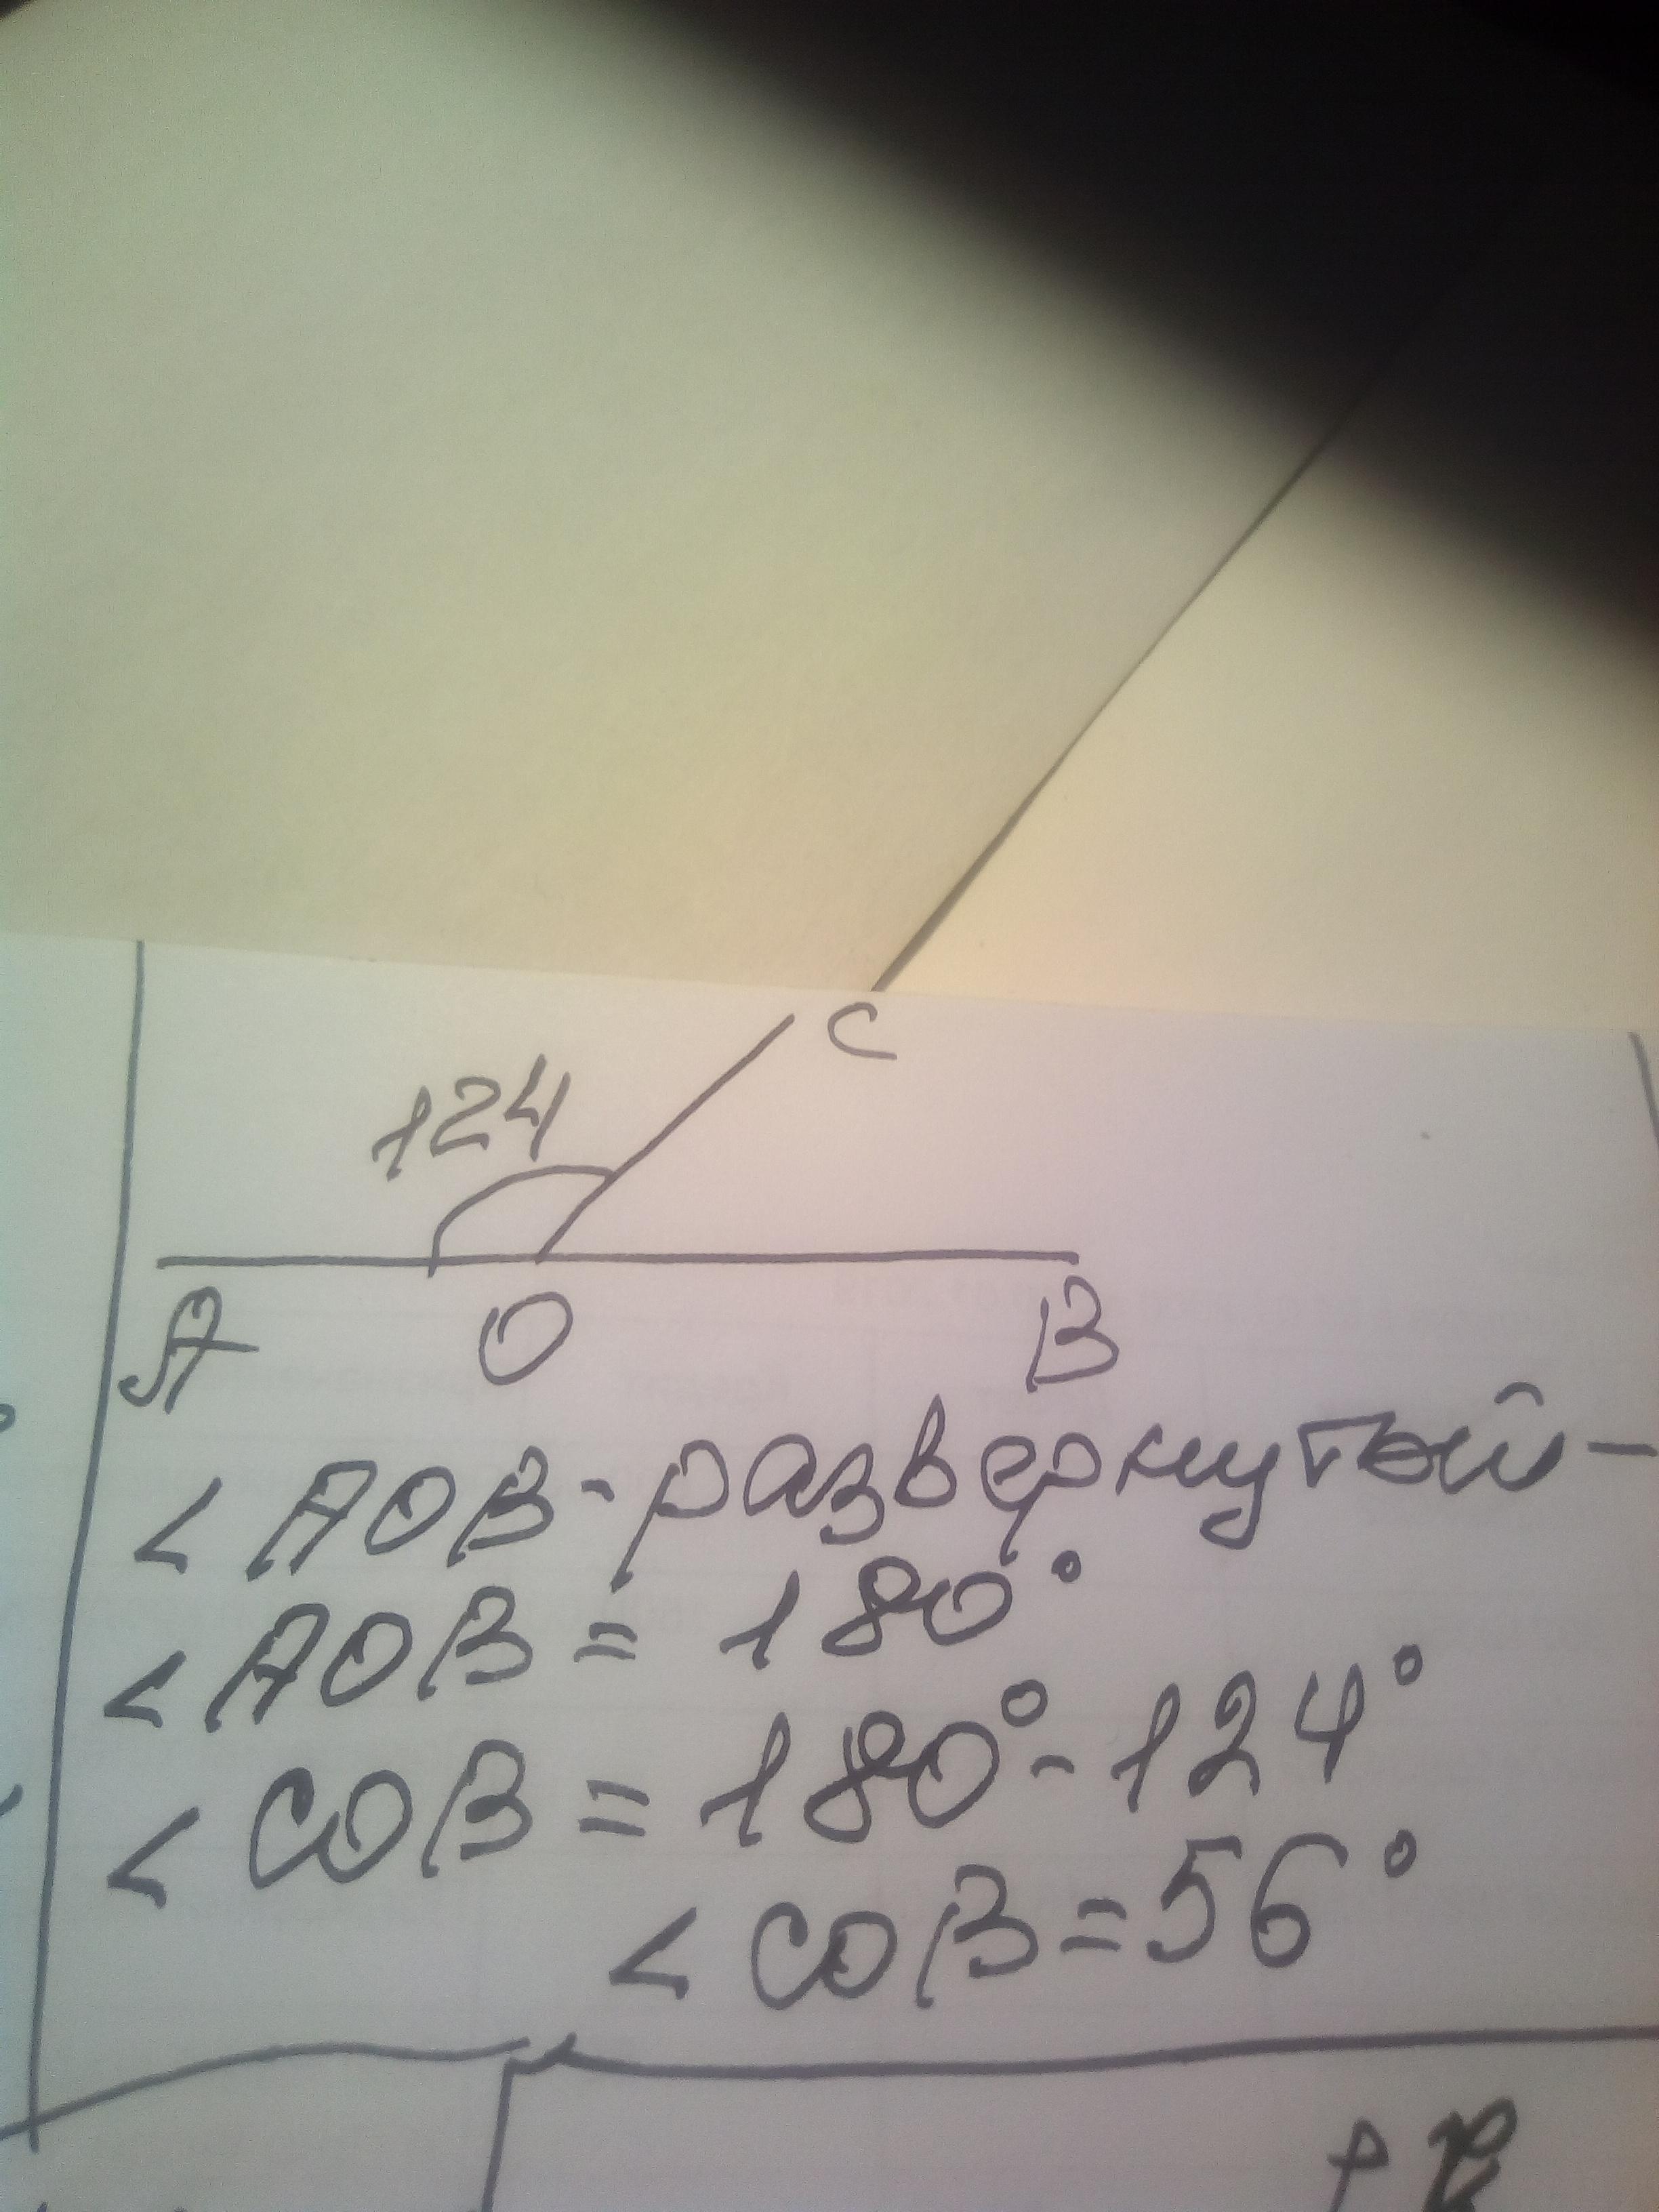 C
124
A O B
< AOB - развернутый -
< AOB = 180°
< COB = 180° - 124°
< COB = 56°